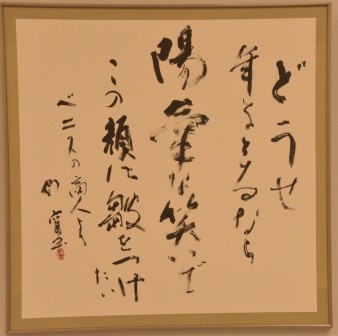 どうせ
年をとるなら
陽気な笑いで
この顔に皺をつけ
たい
ベニスの商人より